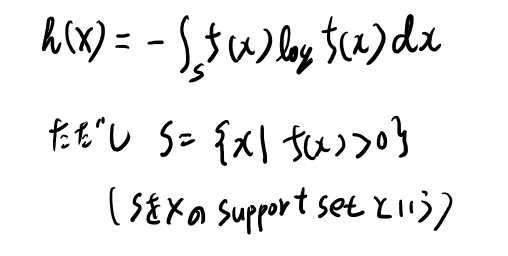 h(X) = - ∫_S f(x) log f(x) dx
ただし S = {x | f(x) > 0}
(SをXの support set という)